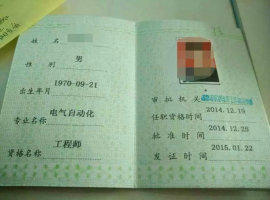 姓名
性别 男
出生年月 1970-09-21
专业名称 电气自动化
资格名称 工程师
审批机关
任职资格时间 2014.12.19
批准时间 2014.12.25
发证时间 2015.01.22